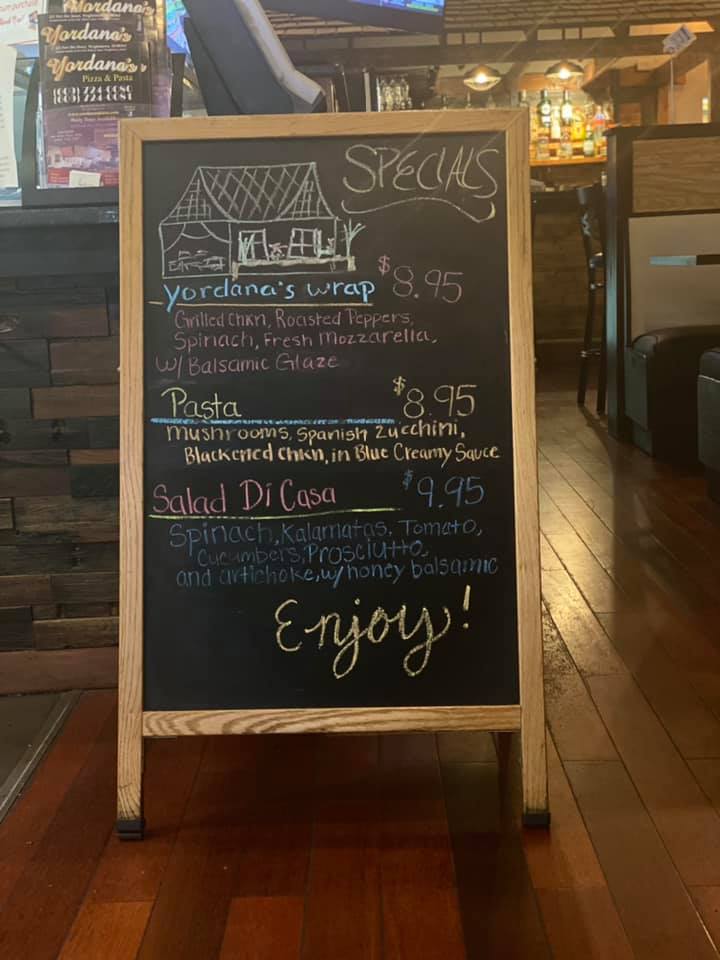 Yordana's
Yordana's
Yordana's
Pizza & Pasta
SPECIALS
Yordana's wrap $8.95
Grilled Chkn, Roasted Peppers,
Spinach, Fresh Mozzarella,
w/ Balsamic Glaze
Pasta $8.95
mushrooms, Spanish Zucchini,
Blackened Chkn, in Blue Creamy Sauce
Salad Di Casa $9.95
Spinach, Kalamatas, Tomato,
Cucumbers, Prosciutto,
and artichoke, w/ honey balsamic
Enjoy!